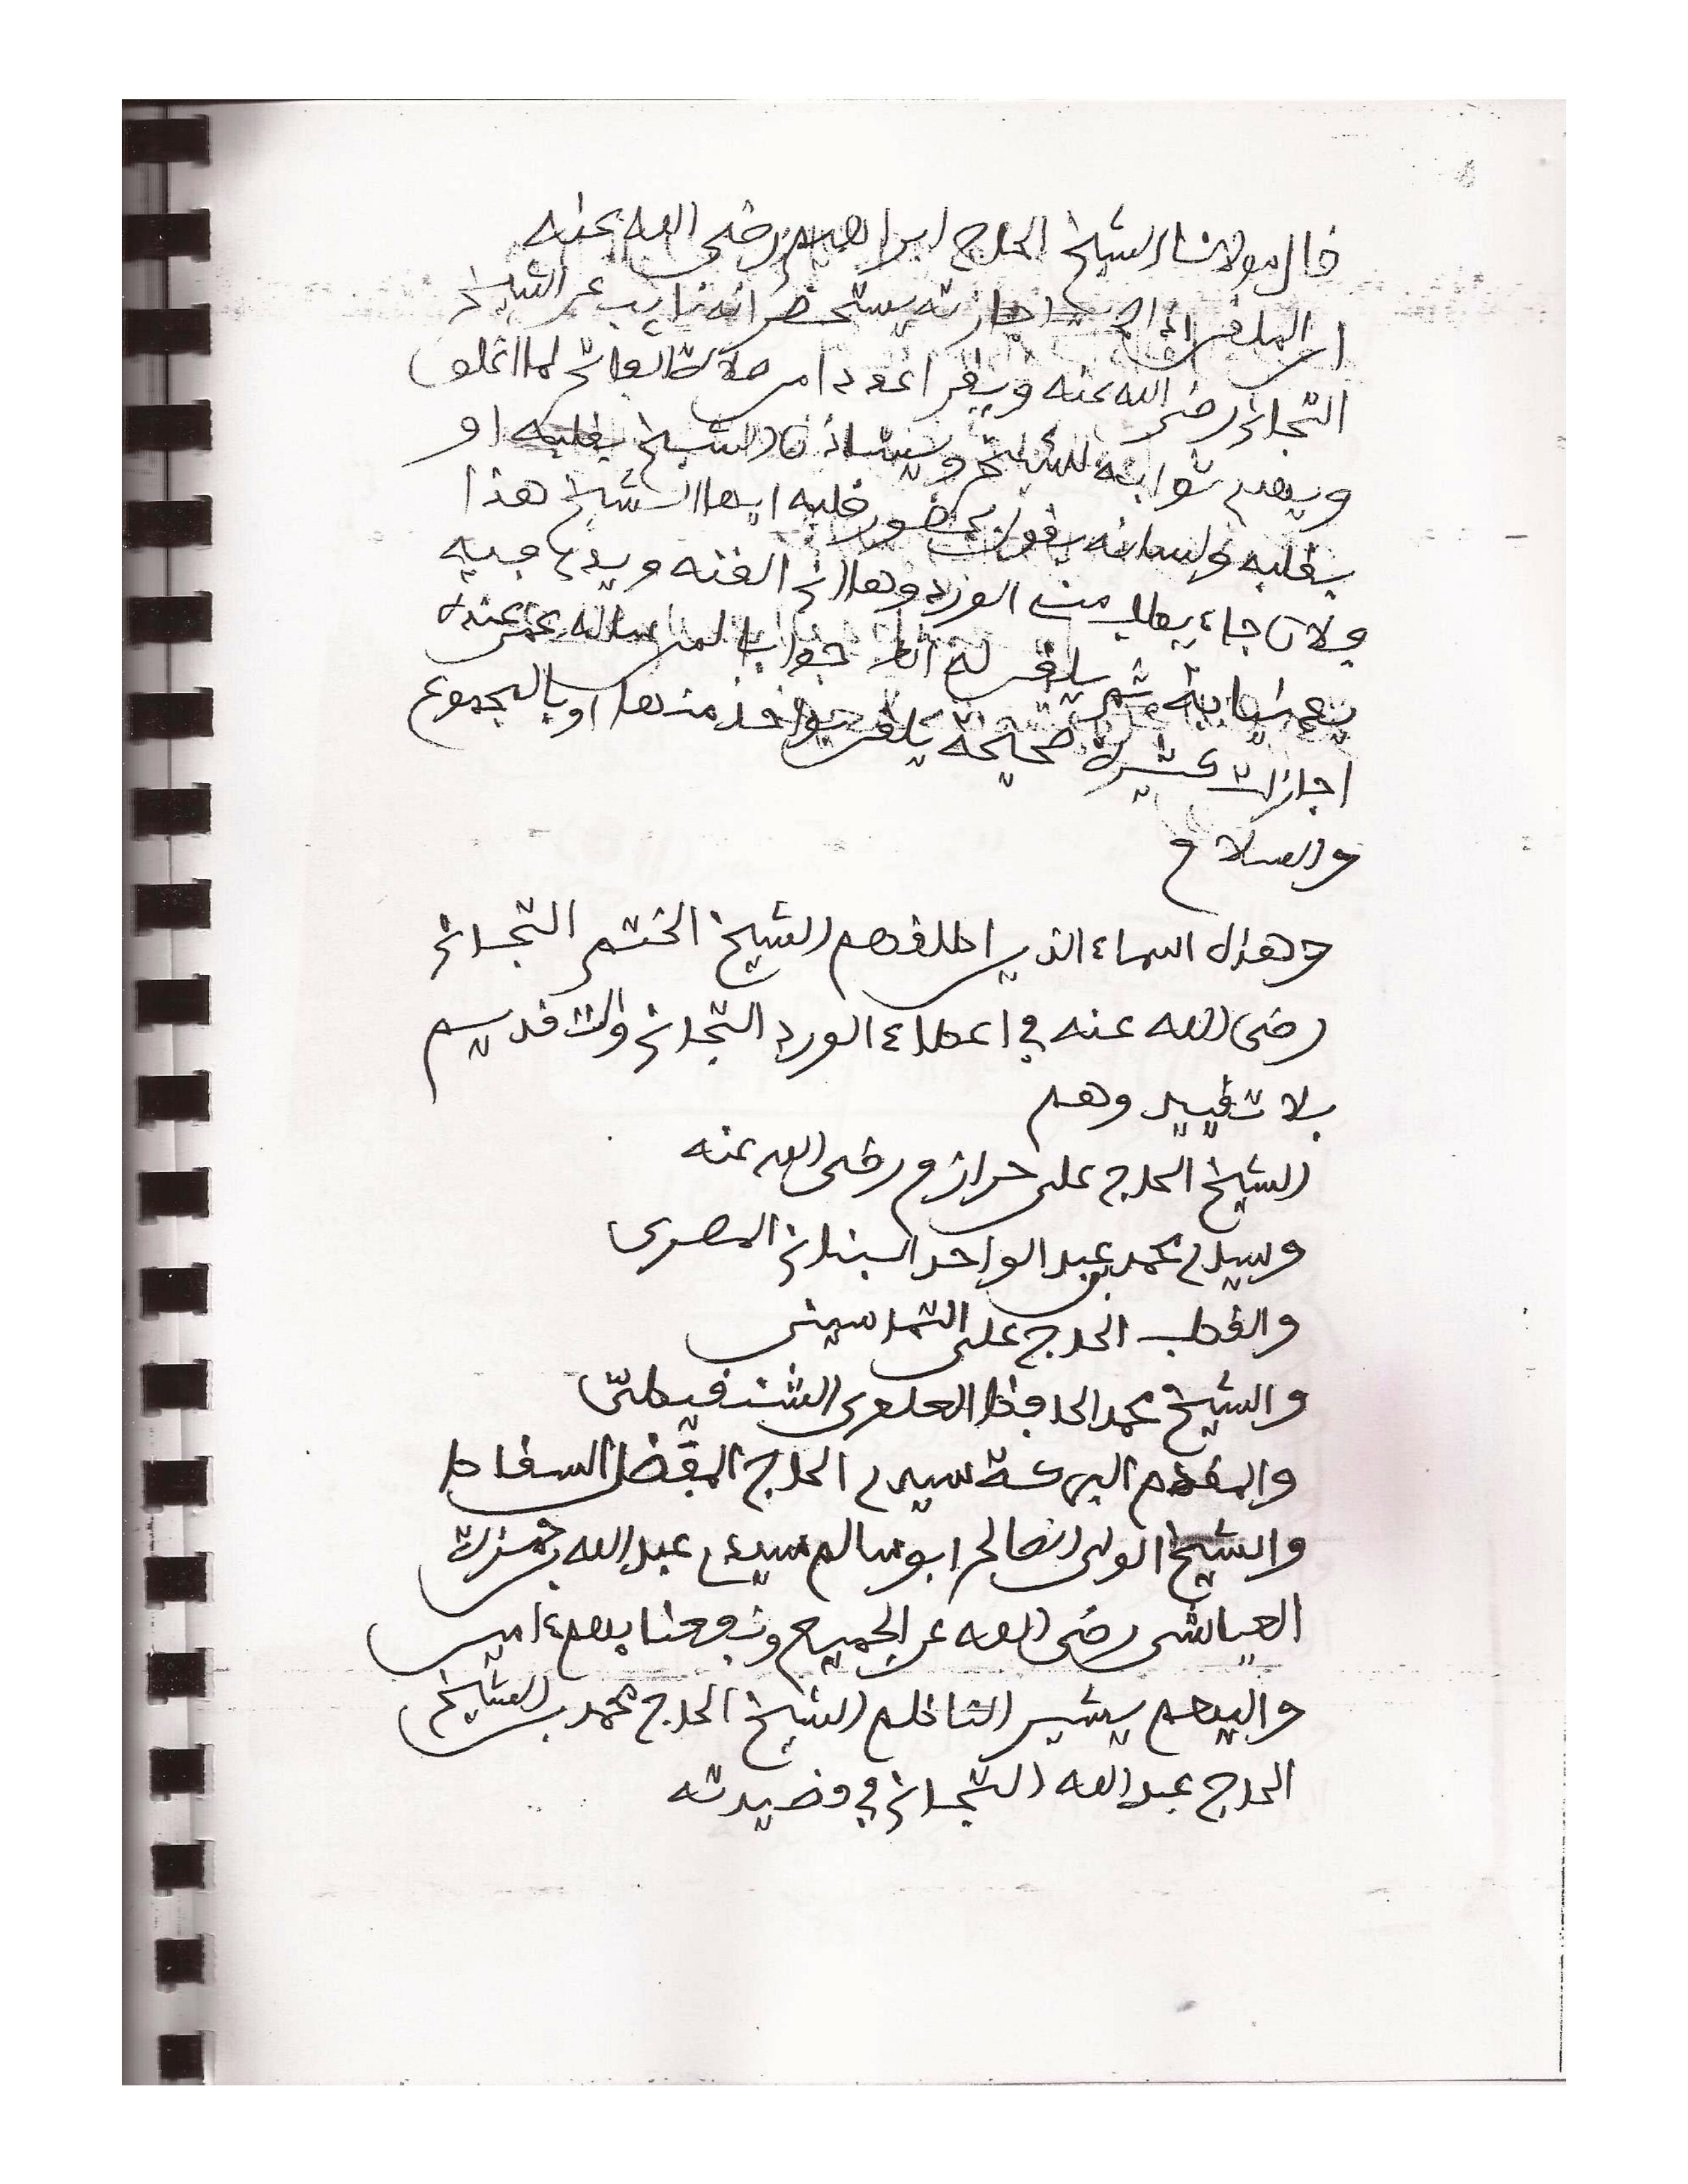 قال مولانا الشيخ الحاج ابراهيم رضى الله عنه
ان الملقن اجازته يستحضر انه نايب عن الشيخ
التجانى رضى الله عنه ويقرأ عددا من صلاة الفاتح لما اغلق
ويهدى ثوابه للشيخ الشيخ بقلبه او
بقلبه ولسانه يقول بحضور قلبه ايها الشيخ هذا
فلان جاء يطلب منى الورد وها انى القنه ويدى فيه
نيابة ثم يلقن له
اجازات كثيرة صحيحة يلقن بواحد منها او بالمجموع
والسلام
وهذه اسماء الذين اطلقهم الشيخ الختم التجانى
رضى الله عنه في اعطاء الورد التجانى والتقديم
بلا تقييد وهم
الشيخ الحاج على حرازم رضى الله عنه
وسيدى محمد بن عبد الواحد البنانى المصرى
والقطب الحاج على التماسينى
والشيخ محمد الحافظ العلوى الشنقيطى
والمقدم البركة سيدى الحاج المفضل السقاط
والشيخ الولى الصالح ابو سالم سيدى عبد الله بن حمزة
العياشى رضى الله عن الجميع ونفعنا بهم ءامين
واليهم يشير الناظم الشيخ الحاج محمد بن الشيخ
الحاج عبد الله التجانى في قصيدته